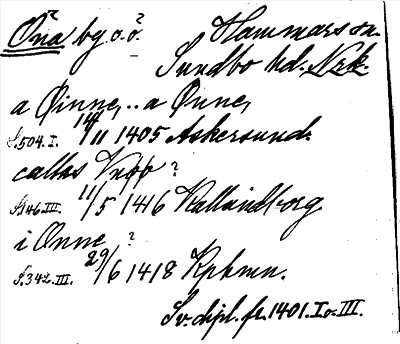 Öna by o.ö. Hammars sn.
Sundbo hd. Nrk.
a Øinne, .. a Ønne,
S. 504. I. 14/11 1405 Askersund.
callas Vnpp ?
S. 146. III. 11/5 1416 Kallundborg
i Ønne ?
S. 342. III. 29/6 1418 Kphmn.
Sv. dipl. fr. 1401. I o. III.